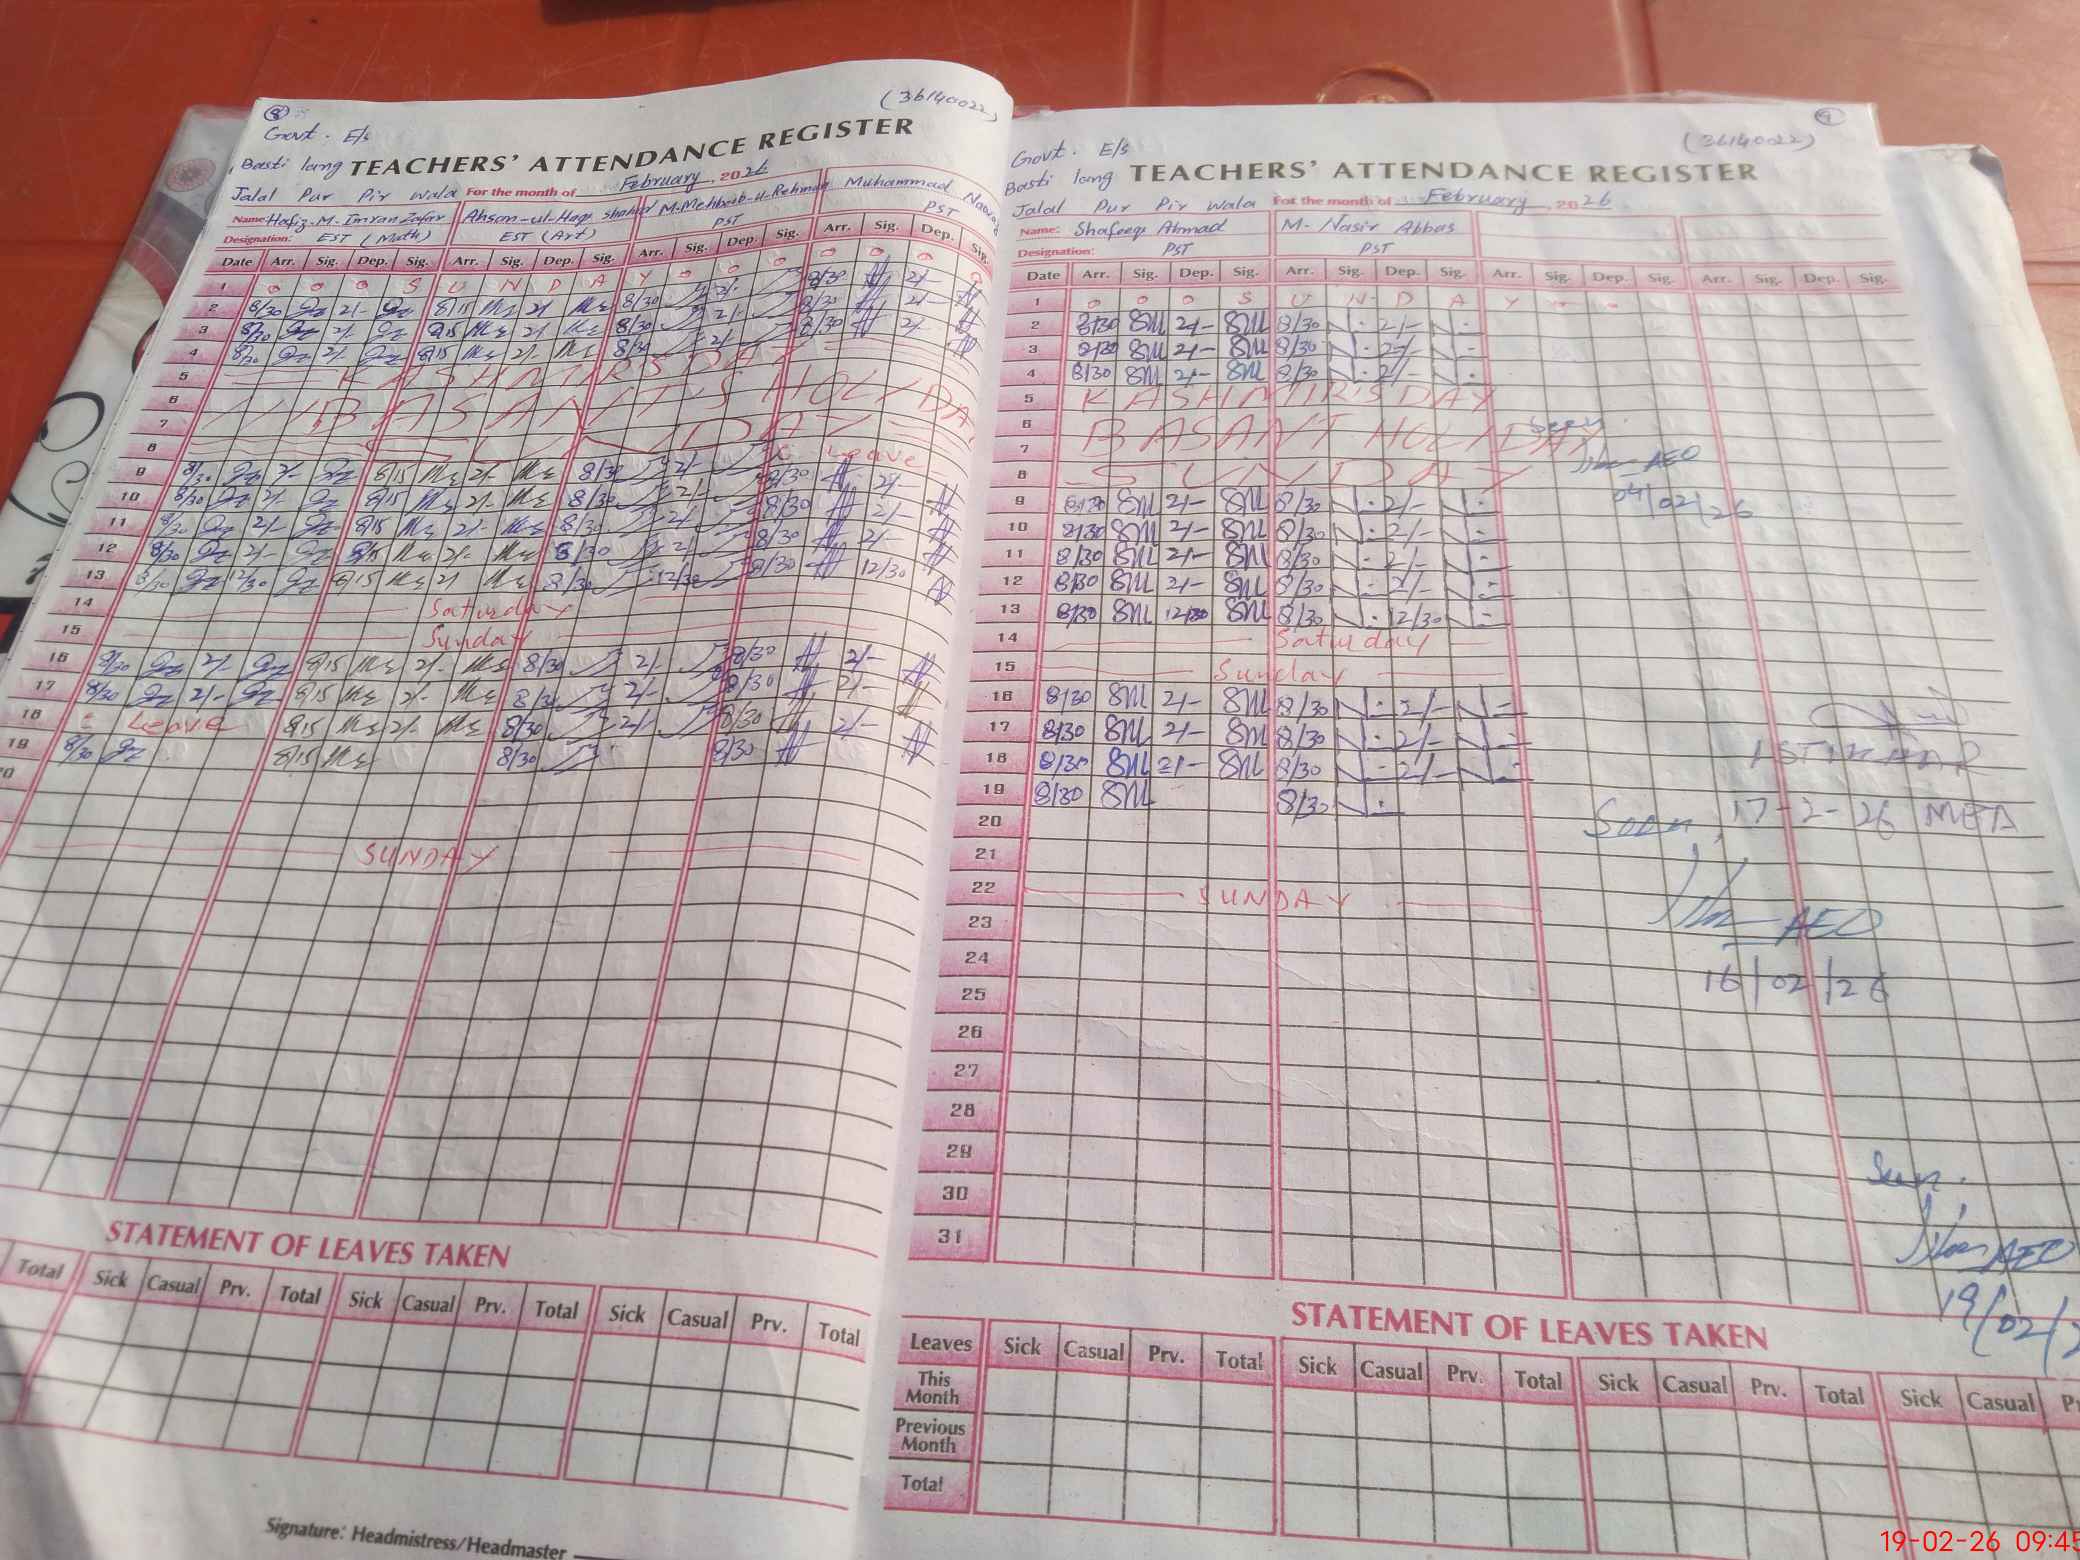 8
(36140022)
Govt. E/s
Basti lang TEACHERS' ATTENDANCE REGISTER
Jalal Pur Pir Wala For the month of February, 2026
Name: Hafiz-M-Imran Zafar Ahsan-ul-Haq M-Mehboob-u-Rehman Muhammad
Designation: EST (Math) EST (Art) PST PST
Date Arr. Sig. Dep. Sig. Arr. Sig. Dep. Sig. Arr. Sig. Dep. Sig. Arr. Sig. Dep. Sig.
1 S U N D A Y
2 8/30 2/- 8/15 2/ 8/30 2/- 8/30 2/-
3 8/30 2/- 8/15 2/ 8/30 2/- 8/30 2/-
4 8/30 2/- 8/15 2/- 8/30 2/- 8/30 2/-
5 KASHMIR'S DAY
6
7 BASANT'S HOLYDAY
8 SUNDAY
Leave
9 8/30 2/- 8/15 2/- 8/30 2/- 8/30 2/-
10 8/30 2/- 8/15 2/- 8/30 2/- 8/30 2/-
11 8/30 2/- 8/15 2/- 8/30 2/- 8/30 2/-
12 8/30 2/- 8/15 2/- 8/30 2/- 8/30 2/-
13 8/30 12/30 8/15 2/ 8/30 12/30 8/30 12/30
14 Saturday
15 Sunday
16 8/30 2/- 8/15 2/- 8/30 2/- 8/30 2/-
17 8/30 2/- 8/15 2/- 8/30 2/- 8/30 2/-
18 Leave 8/15 2/- 8/30 2/- 8/30 2/-
19 8/30 8/15 8/30 8/30
SUNDAY
STATEMENT OF LEAVES TAKEN
Total Sick Casual Prv. Total Sick Casual Prv. Total Sick Casual Prv. Total
Signature: Headmistress/Headmaster
9
(36140022)
Govt. E/s
Basti lang TEACHERS' ATTENDANCE REGISTER
Jalal Pur Pir Wala For the month of February, 2026
Name: Shafeeq Ahmad M- Nasir Abbas
Designation: PST PST
Date Arr. Sig. Dep. Sig. Arr. Sig. Dep. Sig. Arr. Sig. Dep. Sig. Arr. Sig. Dep. Sig.
1 S U N D A Y
2 8/30 2/- 8/30 2/-
3 8/30 2/- 8/30 2/-
4 8/30 2/- 8/30 2/-
5 KASHMIR'S DAY
6
7 BASANT HOLIDAY
AEO
8 SUNDAY
04/02/26
9 8/30 2/- 8/30 2/-
10 8/30 2/- 8/30 2/-
11 8/30 2/- 8/30 2/-
12 8/30 2/- 8/30 2/-
13 8/30 12/30 8/30 12/30
14 Saturday
15 Sunday
16 8/30 2/- 8/30 2/-
17 8/30 2/- 8/30 2/-
18 8/30 2/- 8/30 2/-
19 8/30 8/30
20
17-2-26 MEA
21
22 SUNDAY
23
AEO
24
16/02/26
25
26
27
28
29
30
31
Seen.
AEO
19/02/2
STATEMENT OF LEAVES TAKEN
Leaves Sick Casual Prv. Total Sick Casual Prv. Total Sick Casual Prv. Total Sick Casual
This Month
Previous Month
Total
19-02-26 09:45